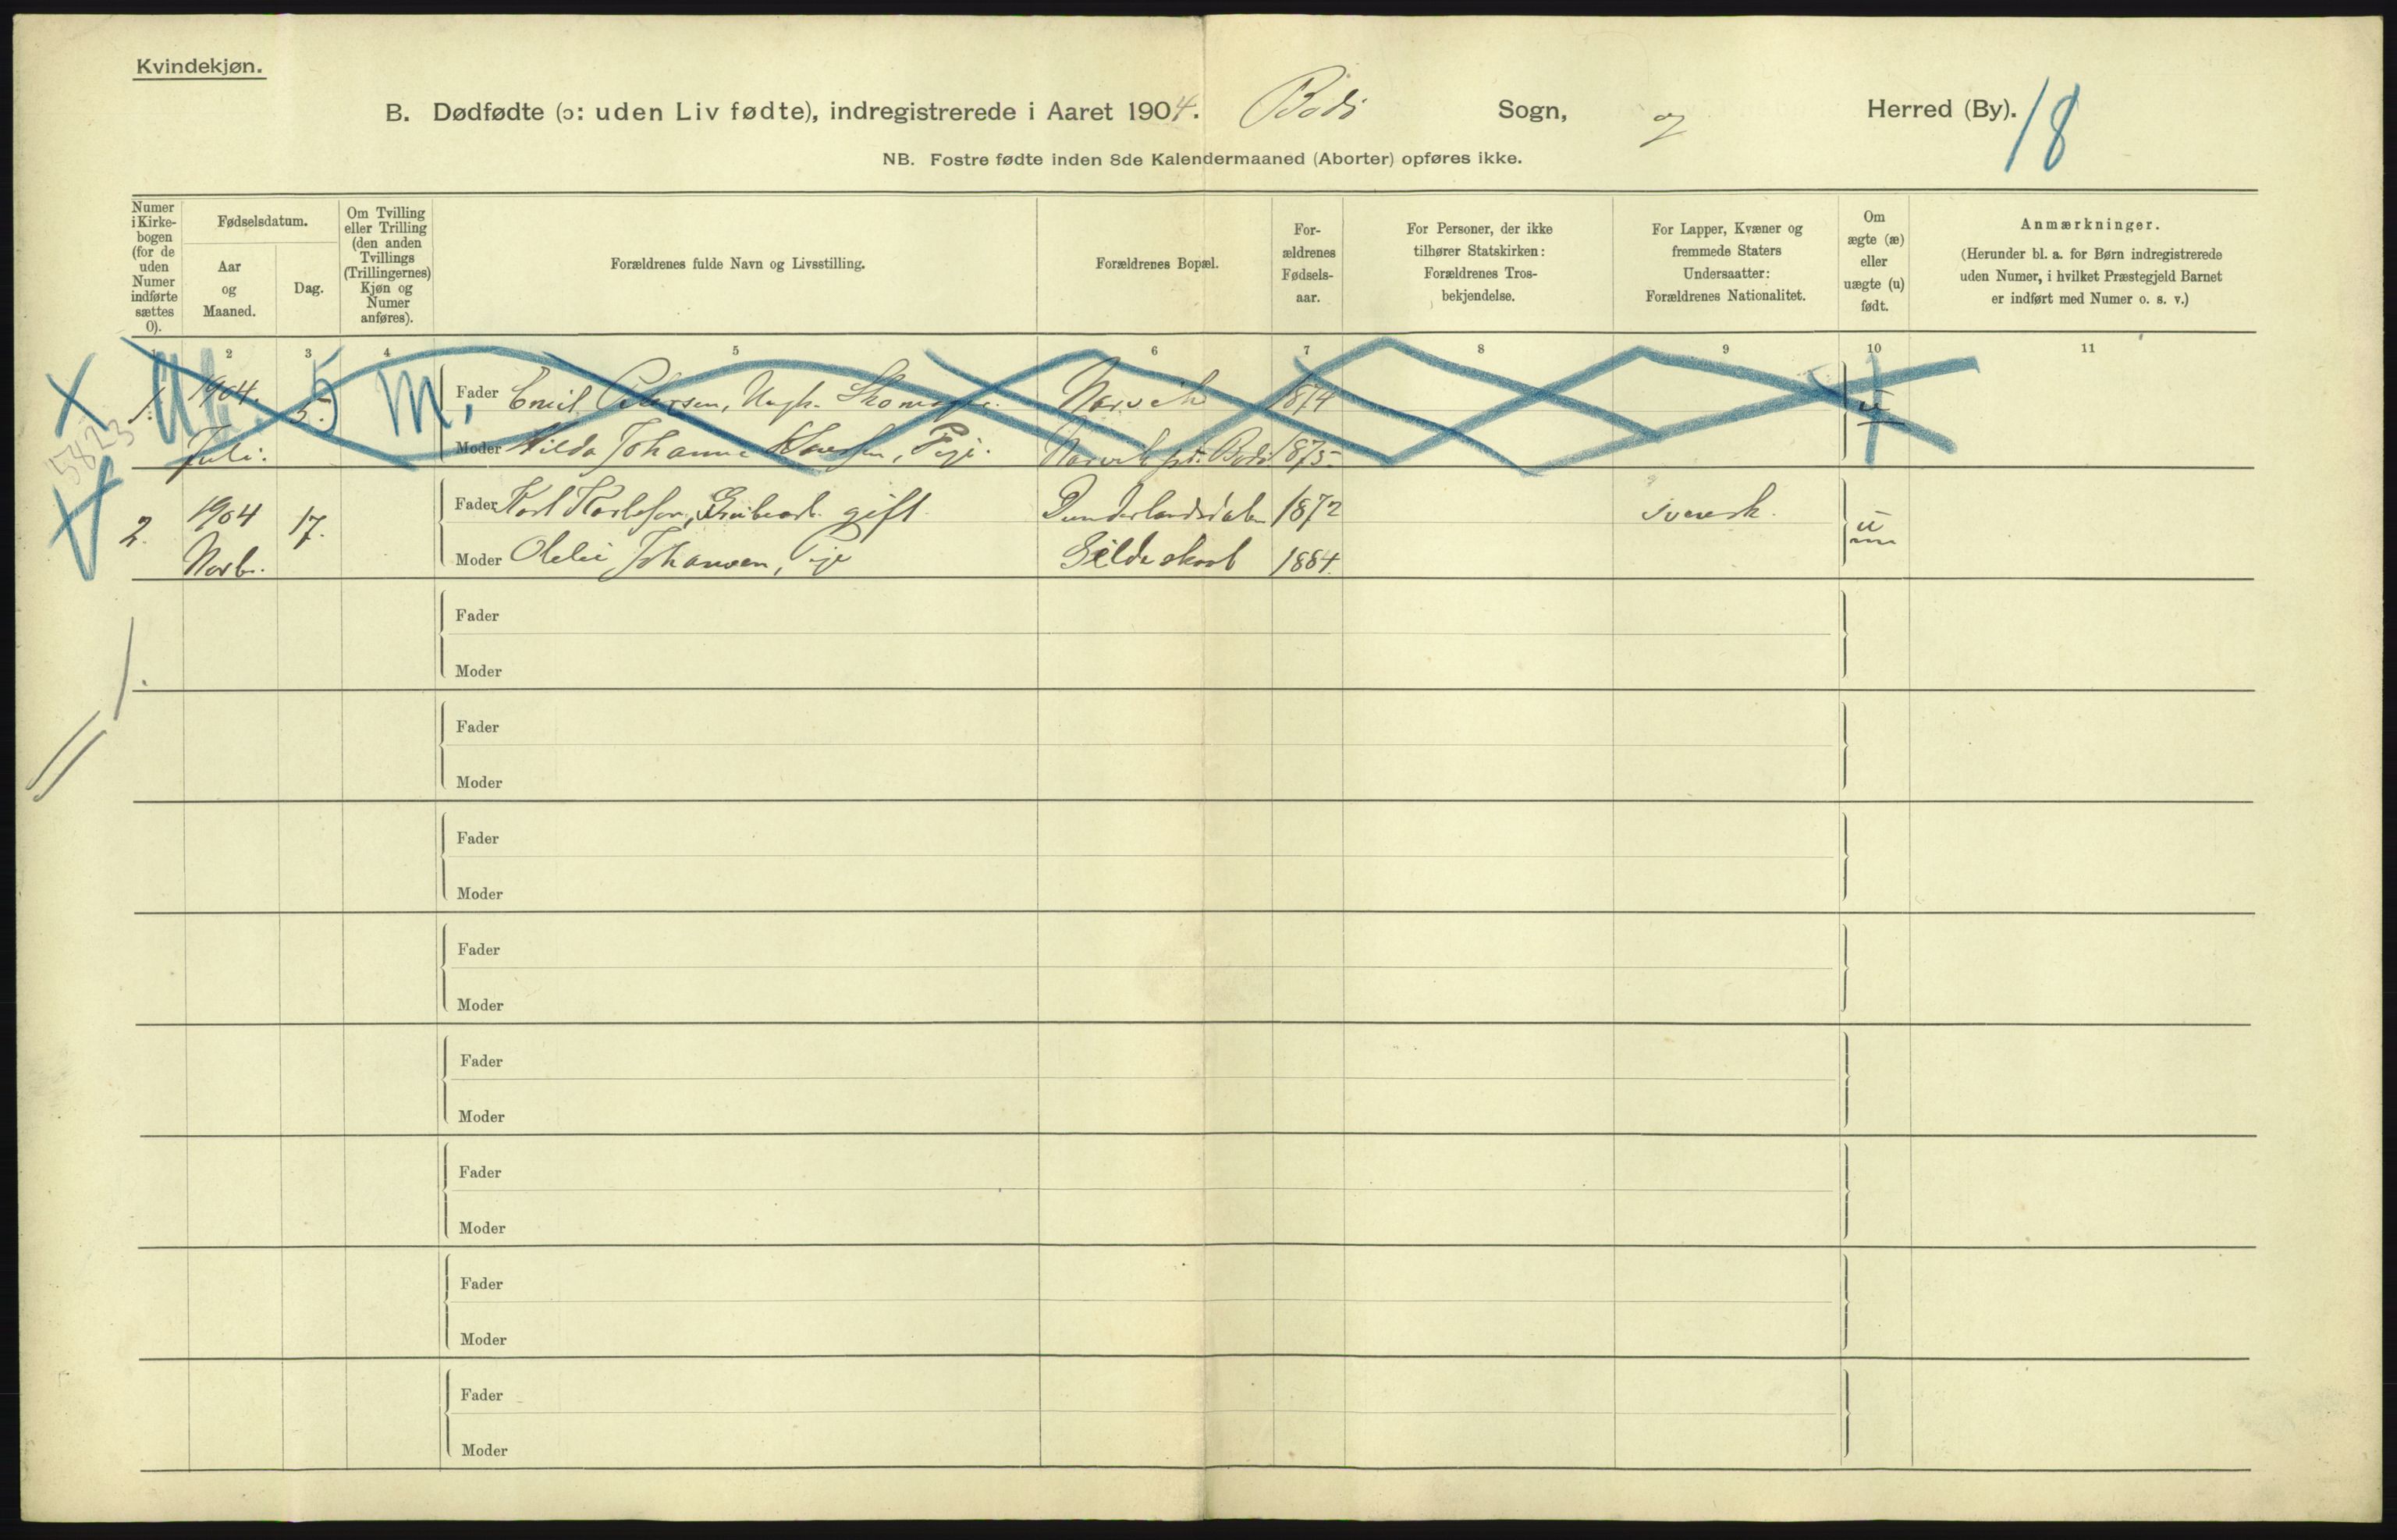 Kvindekjøn.
B. Dødfødte (ɔ: uden Liv fødte), indregistrerede i Aaret 1904. Bodø Sogn, og Herred (By). 18
NB. Fostre fødte inden 8de Kalendermaaned (Aborter) opføres ikke.
Numer i Kirke-bogen (for de uden Numer indførte sættes 0).
Fødselsdatum.
Aar og Maaned.
Dag.
Om Tvilling eller Trilling (den anden Tvillings (Trillingernes) Kjøn og Numer anføres).
Forældrenes fulde Navn og Livsstilling.
Forældrenes Bopæl.
For-ældrenes Fødsels-aar.
For Personer, der ikke tilhører Statskirken: Forældrenes Tros-bekjendelse.
For Lapper, Kvæner og fremmede Staters Undersaatter: Forældrenes Nationalitet.
Om ægte (æ) eller uægte (u) født.
Anmærkninger.
(Herunder bl. a. for Børn indregistrerede uden Numer, i hvilket Præstegjeld Barnet er indført med Numer o. s. v.)
1 2 3 4 5 6 7 8 9 10 11
5823
1. 1904. 5. m, Fader Emil Petersen, Ungk. Narvik 1874 u
Juli. Moder Hilda Johanne Pige. Narvik pt. Bodø 1875
2. 1904 17. Fader Karl Karlsson, gift Dunderlandsdalen 1872 svensk. u
Novb. Moder Johansen, Pige Gildeskaal 1884.
Fader
Moder
Fader
Moder
Fader
Moder
Fader
Moder
Fader
Moder
Fader
Moder
Fader
Moder
Fader
Moder